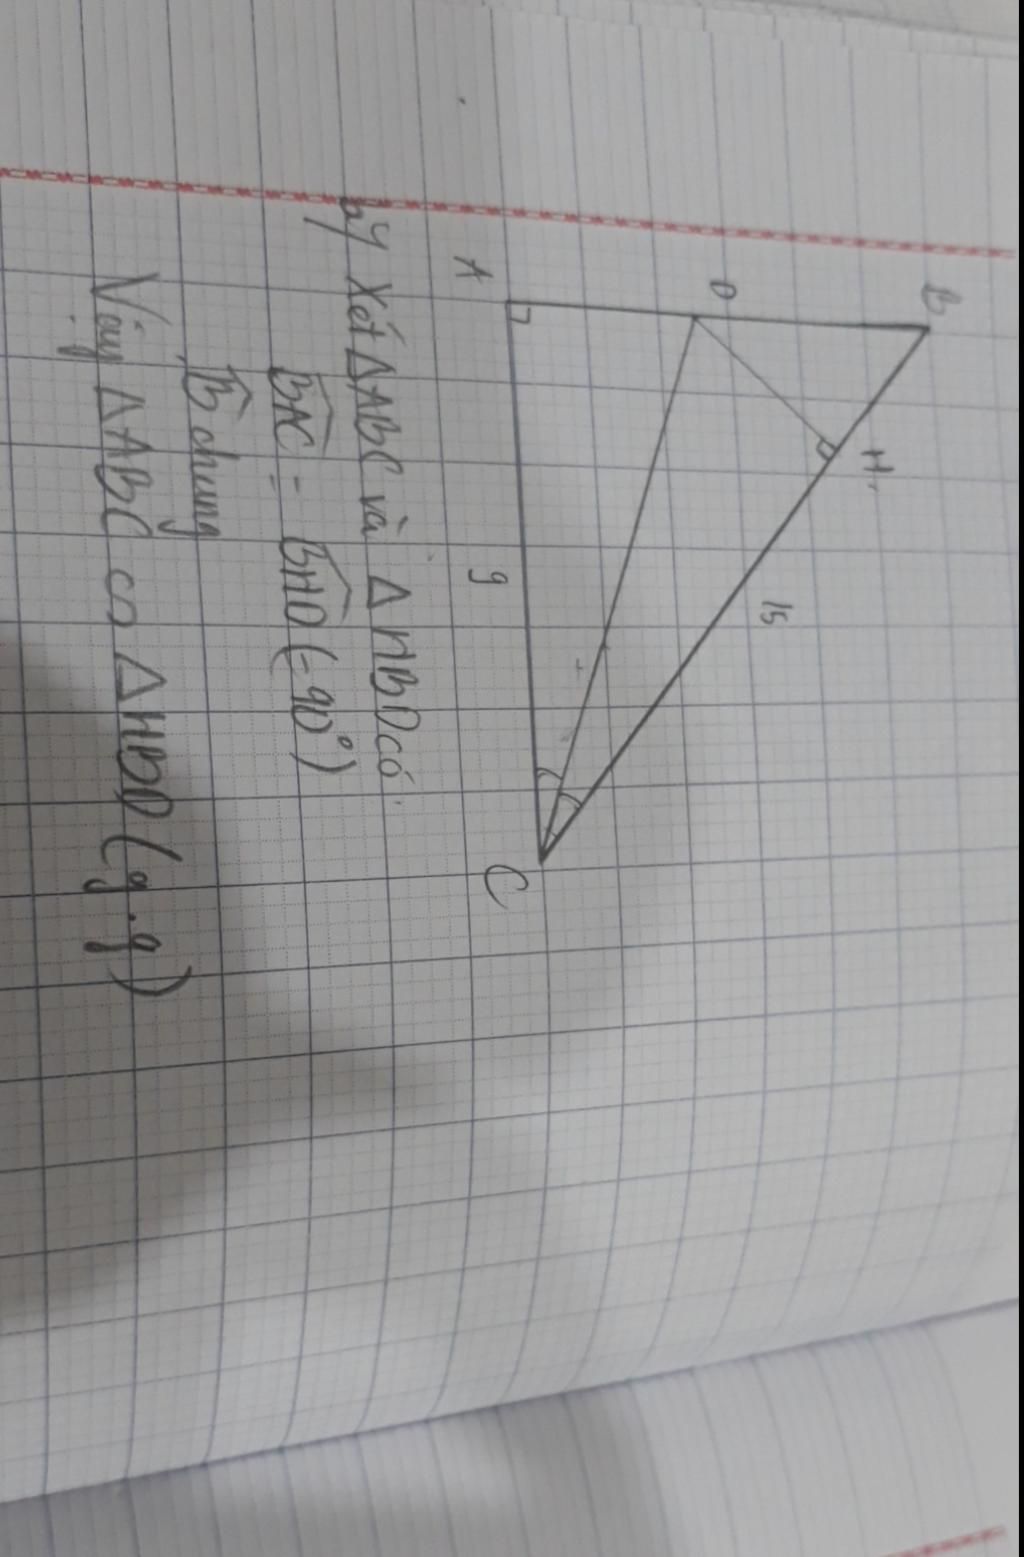 B
H
D
15
A
9
C
b) Xét ΔABC và ΔHBD có:
BAC = BHD (= 90°)
B chung
Vậy ΔABC ∽ ΔHBD (g.g)